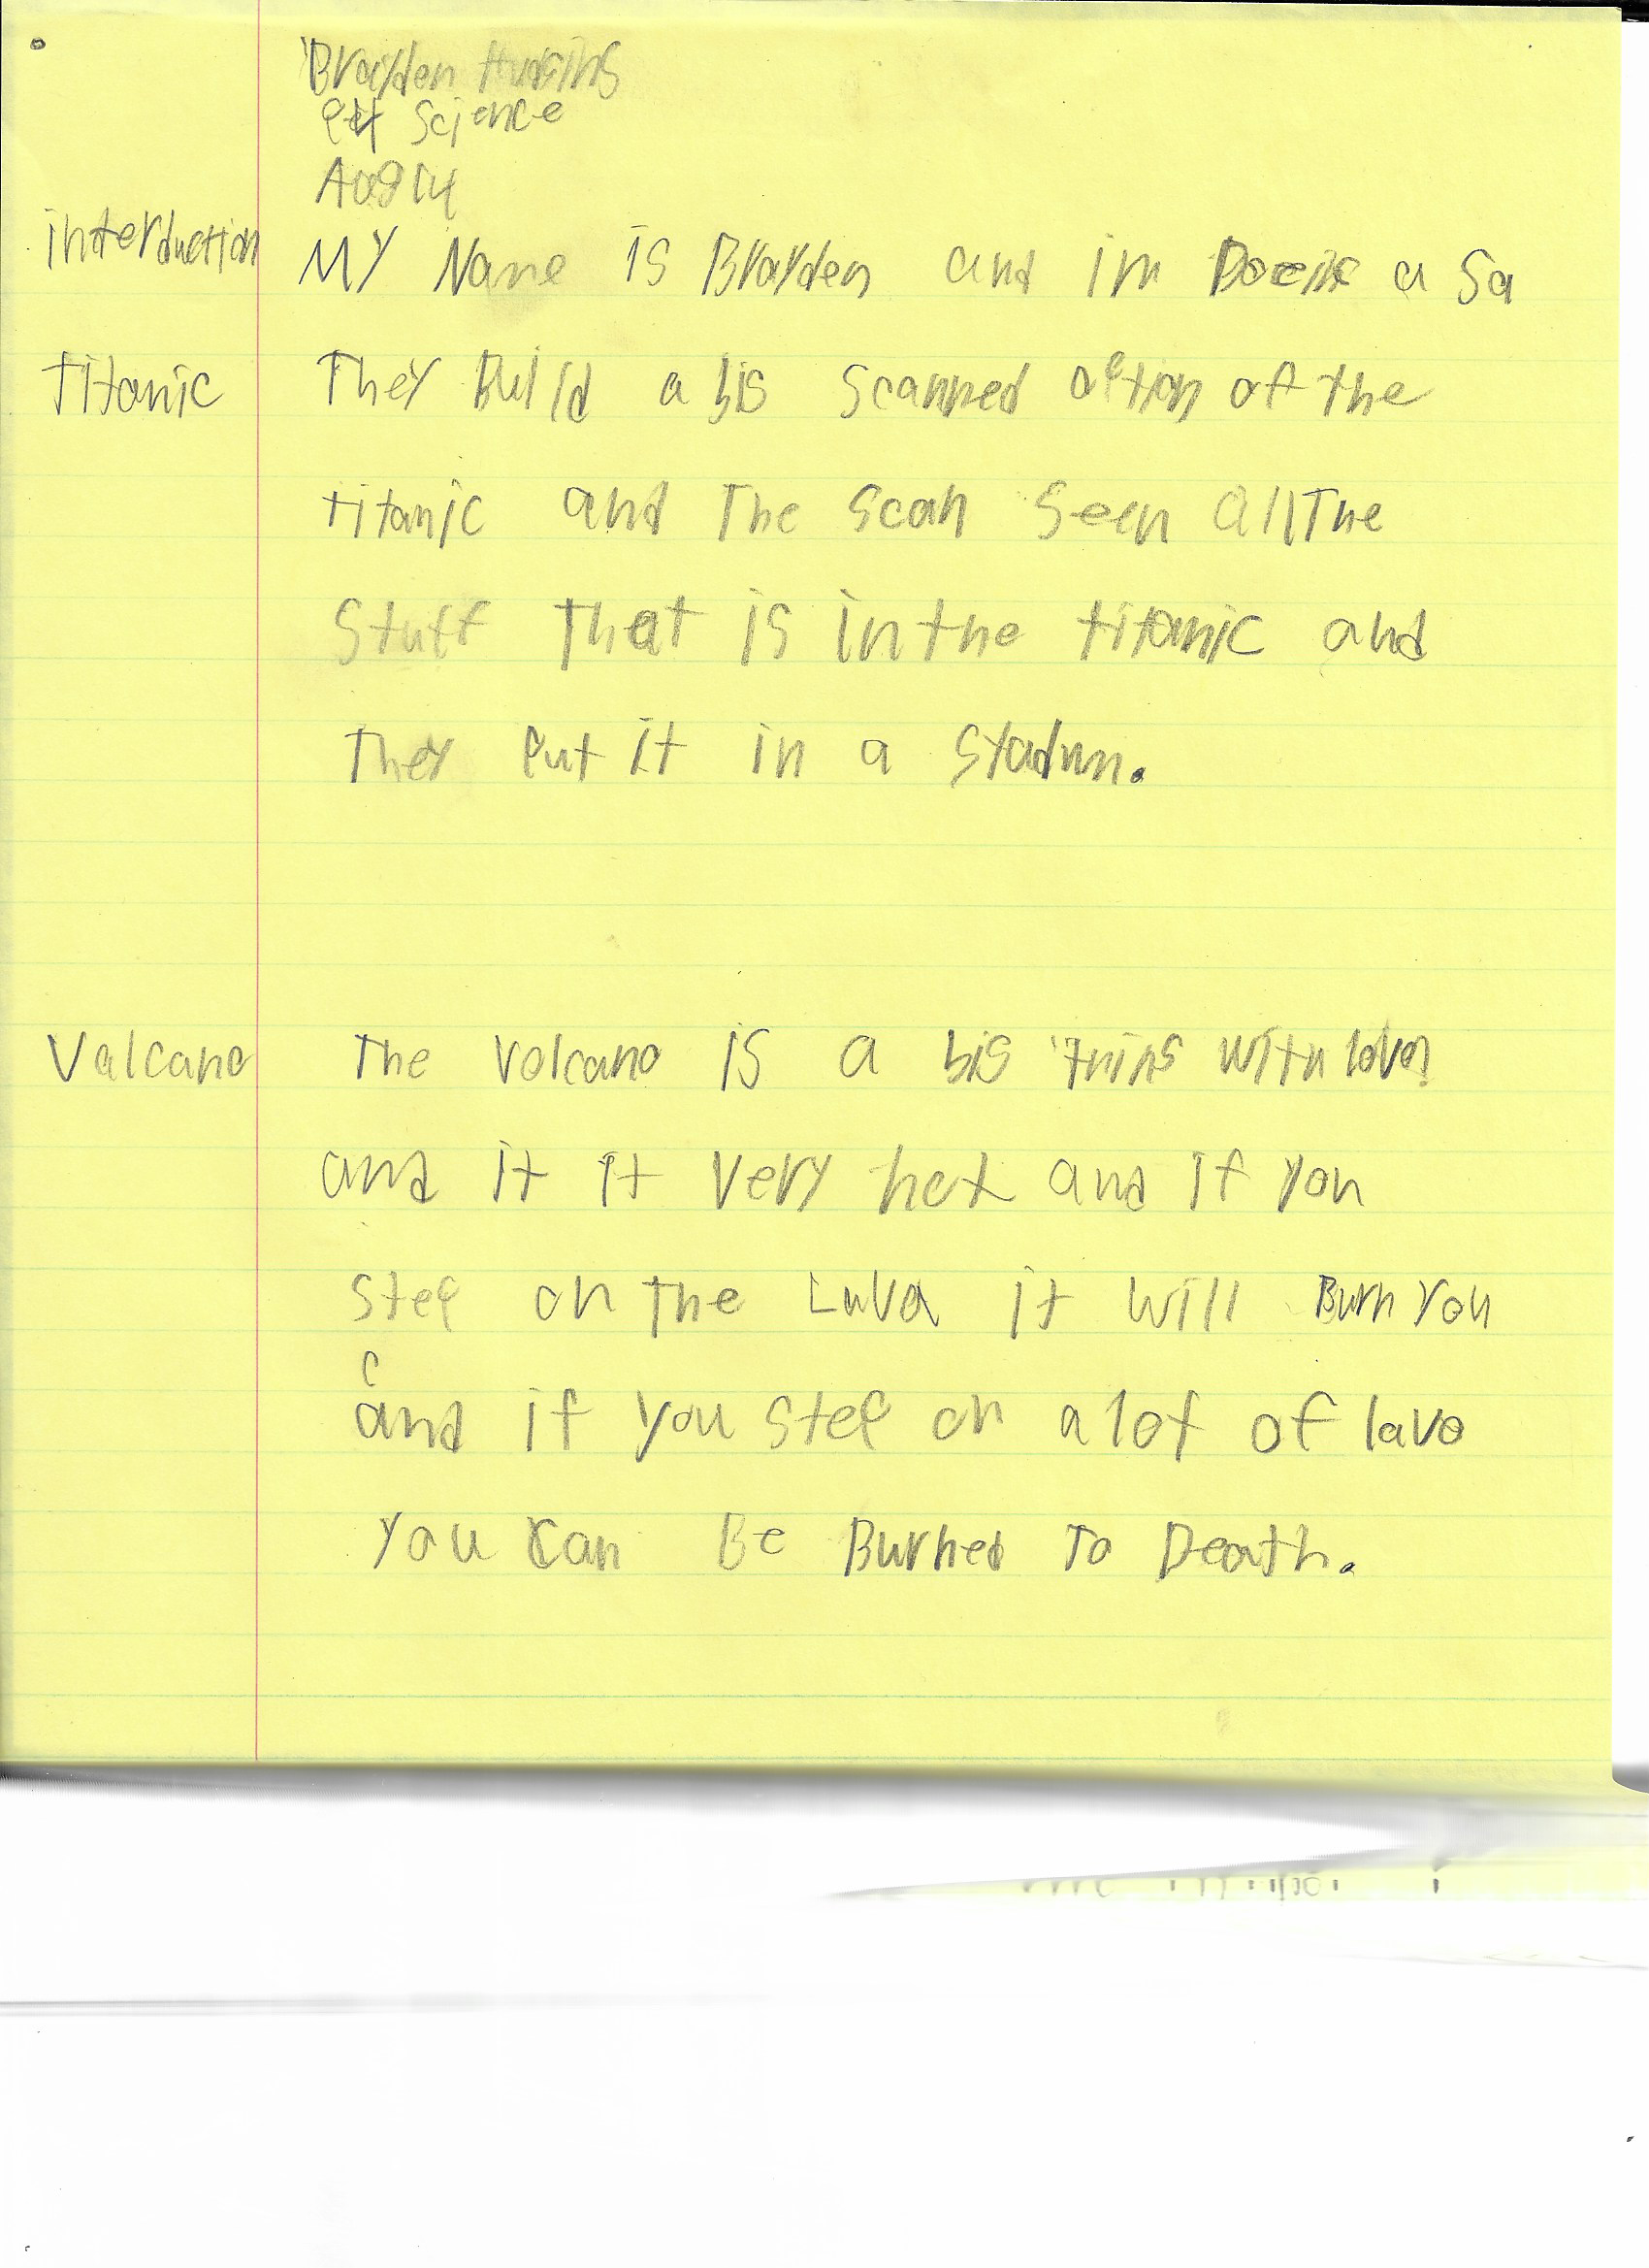 Brayden
Science
Aug 14
interduction MY Name is Brayden and im Doeing a Sa
Titanic They Build a big Scanned of the
titanic and The scan Seen all The
Stuff That is in the titanic and
They put it in a Stadum.
Valcano The volcano is a big thing With lava
and it it very hot and if you
step on The Lava it will Burn You
and if you step on a lot of lava
You can Be Burned To Death.